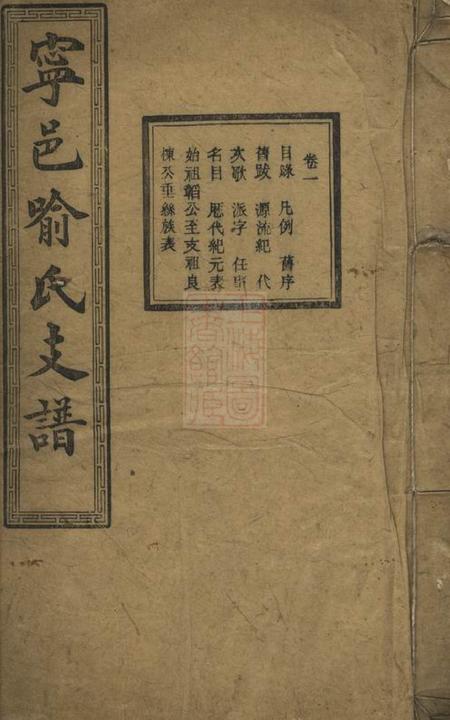 寧邑喻氏支譜
卷一
目錄 凡例 舊序
舊跋 源流紀 代
次歌 派字 任事
名目 歷代紀元表
始祖韜公至支祖良
棟公垂絲族表